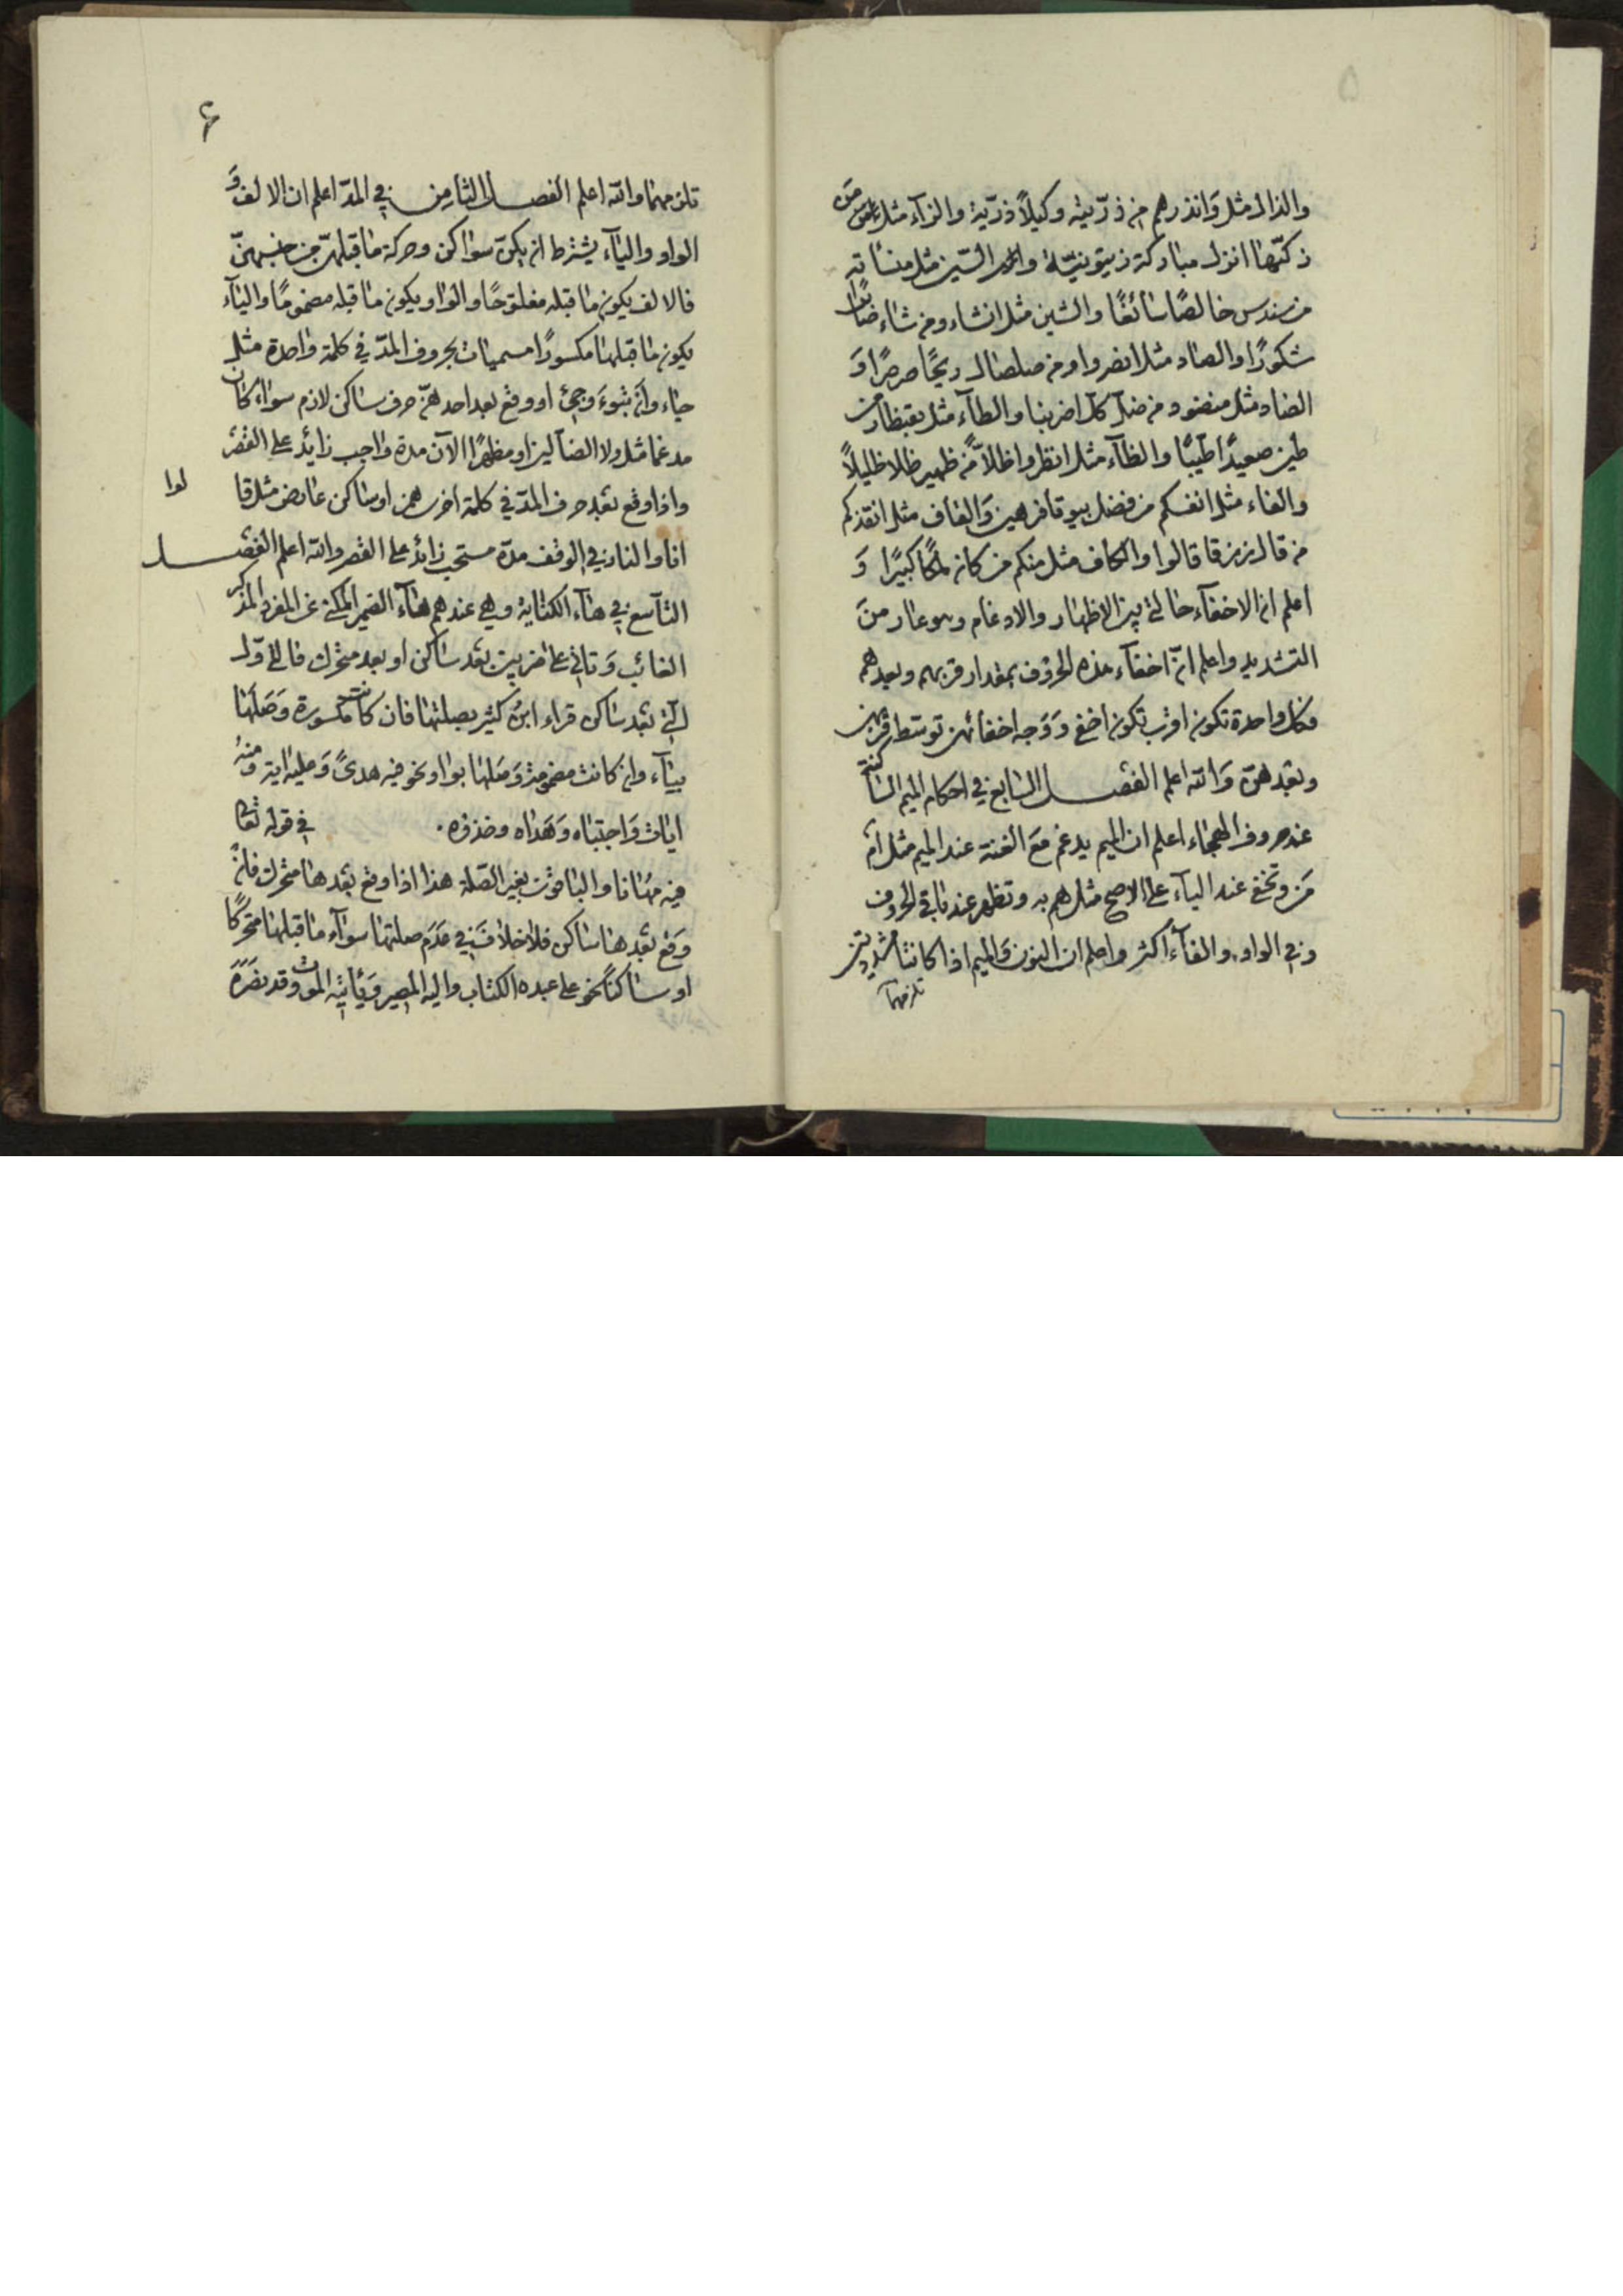 ۵
والذال مثل وانذرهم من ذرّيته وكيلاً ذرّية والزاء مثل من
زكّيها انزل مباركة زيتونيّة والسّين مثل منسأته
من سندس خالصًا سائغًا والشين مثل انشاء ومن شاء
شكورًا والصاد مثل انصروا ومن صلصال ريحًا صرصرًا وَ
الضاد مثل منضود من ضلّ كلّ اضربنا والطآء مثل بقنطار من
طين صعيدًا طيبًا والظآء مثل انظروا ظلاًّ من ظهير ظلا ظليلاً
والفاء مثل انفسكم من فضل بيوتا فرهين وَالقاف مثل انقذكم
من قال رزقا قالوا والكاف مثل منكم من كان ملكًا كبيرًا وَ
اعلم ان الاخفآء حالة بين الاظهار والادغام وهو عار من
التشديد واعلم انّ اخفآء هذه الحروف بمقدار قربهم وبعدهم
فكل واحدة تكون اقرب تكون اخفى وَوَجه اخفائهن توسّط قربهن
وبعدهنّ وَالله اعلم الفصل السابع في احكام الميم الساكنة
عند حروف الهجاء اعلم ان الميم يدغم مَع الغنة عند الميم مثل ام
مَن وتخفى عند البآء على الاصح مثل هم به وتظهر عند باقي الحروف
وفي الواو والفآء أكثر واعلم ان النون وَالميم اذا كانتا مشدّدتين
تلزمهما
۶
تلزمهما والله اعلم الفصل الثامن في المدّ اعلم ان الالف وَ
الواو واليآء يشترط ان يكنّ سواكن وحركة ما قبلهنّ من جنسهنّ
فالالف يكون ما قبله مفتوحًا والواو يكون ما قبله مضمومًا واليآء
يكون ما قبلها مكسورًا مسميات بحروف المدّ في كلمة واحدة مثل
جاء وان تبوءَ وجئ او وقع بعد احدهنّ حرف ساكن لازم سواء كان
مدغما مثل ولا الضآلين او مظهرًا الآن مدة واجب زائد على القصر
واذا وقع بعد حرف المدّ في كلمة اخرى همز او ساكن عارض مثل قا لوا
انا والنار في الوقف مدة مستحب زائد على القصر والله اعلم الفصل
التآسع في هآء الكناية وهي عندهم هآء الضمير المكنى عن المفرد المذكر
الغائب وَتاتي على ضربين بعد ساكن او بعد متحرك فالاوّل
التي بعد ساكن قراء ابن كثير بصلتها فان كانت مكسورة وَصَلَها
بيآء وان كانت مضمومة وَصَلها بواو نحو فيه هدىً وَعليه اية ومنهُ
ايات وَاجتباه وَهَداه وخذوه. في قوله تعالى
فيه مهانا والباقون بغير الصّلة هذا اذا وقع بعدها متحرك فان
وَقع بعدها ساكن فلا خلاف في عَدَم صلتها سوآء ما قبلها متحركًا
او ساكنًا نحو على عبده الكتاب واليه المصير وَيأتيه الموت وقد نصَرَهُ